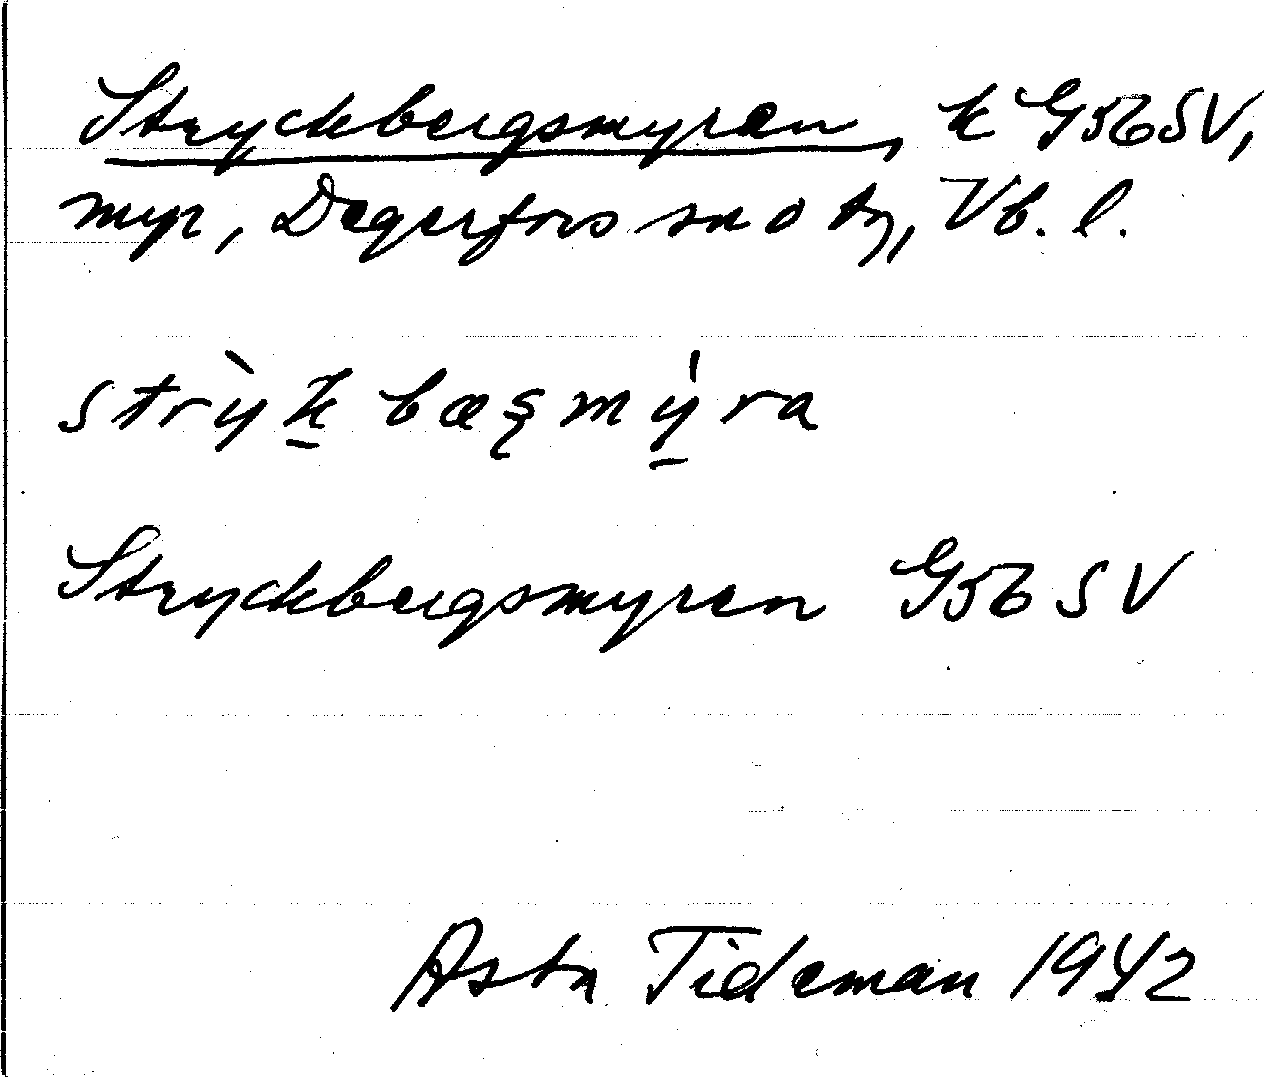 Stryckbergsmyren, k G56SV,
myr, Degerfors sn o tg, Vb. l.
strỳk bæʂmýra
Stryckbergsmyren G56 SV
Asta Tideman 1942